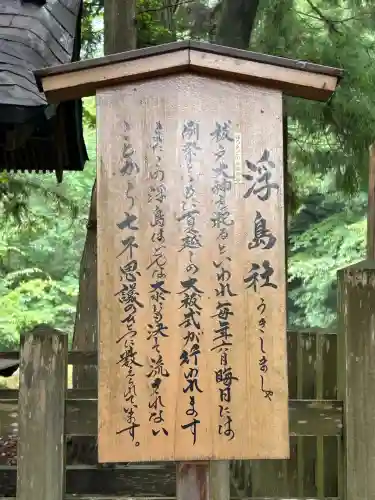 浮島社
うきしましゃ
祓戸大神を祀るといわれ毎年六月晦日には
例祭と夏越しの大祓式が行われます
またこの浮島はどんな大水も決して流されない
ことから七不思議の一つに数えられて居ます。